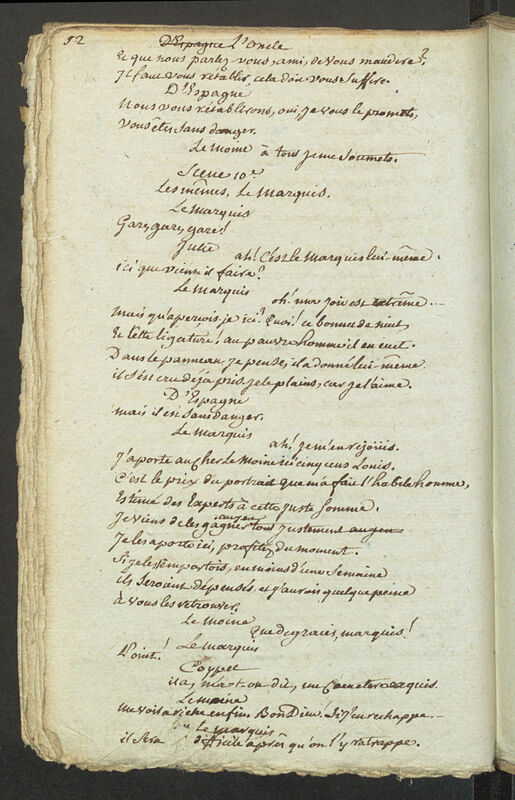 52
D'Espagne L'Oncle
Et que nous parlez-vous, ami, de vous maudire?
Il faut vous rétablir, cela doit vous suffire.
D'Espagne
Nous vous rétablirons, oui, je vous le promets,
Vous êtes sans danger.
Le Moine à tout je me soumets.
Scene 10e
Les mêmes, Le Marquis.
Le Marquis
Gare, gare, gare!
Julie
ah! C'est le Marquis lui-même.
ici que vient-il faire?
Le Marquis
oh! ma joie est extrême...
Mais qu'aperçois-je ici? Quoi! ce bonnet de nuit,
Et cette ligature! au pauvre homme il en cuit.
Dans le panneau, je pense, il a donné lui-même
il s'est cru déjà pris, je le plains, car je l'aime.
D'Espagne
mais il est sans danger.
Le Marquis
ah! je m'en rejouis.
J'aporte au cher Le Moine ici cinq cens Louis.
C'est le prix du portrait que m'a fait l'habile homme,
Estimé des Experts à cette juste somme.
Je viens de les gagner tout justement au jeu
au jeu
Je les aporte ici, profitez du moment.
Si je les emportois, en moins d'une Semaine
ils seroient dépensés, et j'aurois quelque peine
à vous les retrouver.
Le Moine
Que de graces, marquis!
Le Marquis
Point!
Coypel
il a, m'a-t-on dit, un Caractere exquis.
Le Moine
me voilà riche enfin. Bon Dieu! Si j'en rechappe...
Le Marquis
il sera dificile après qu'on l'y ratrappe.